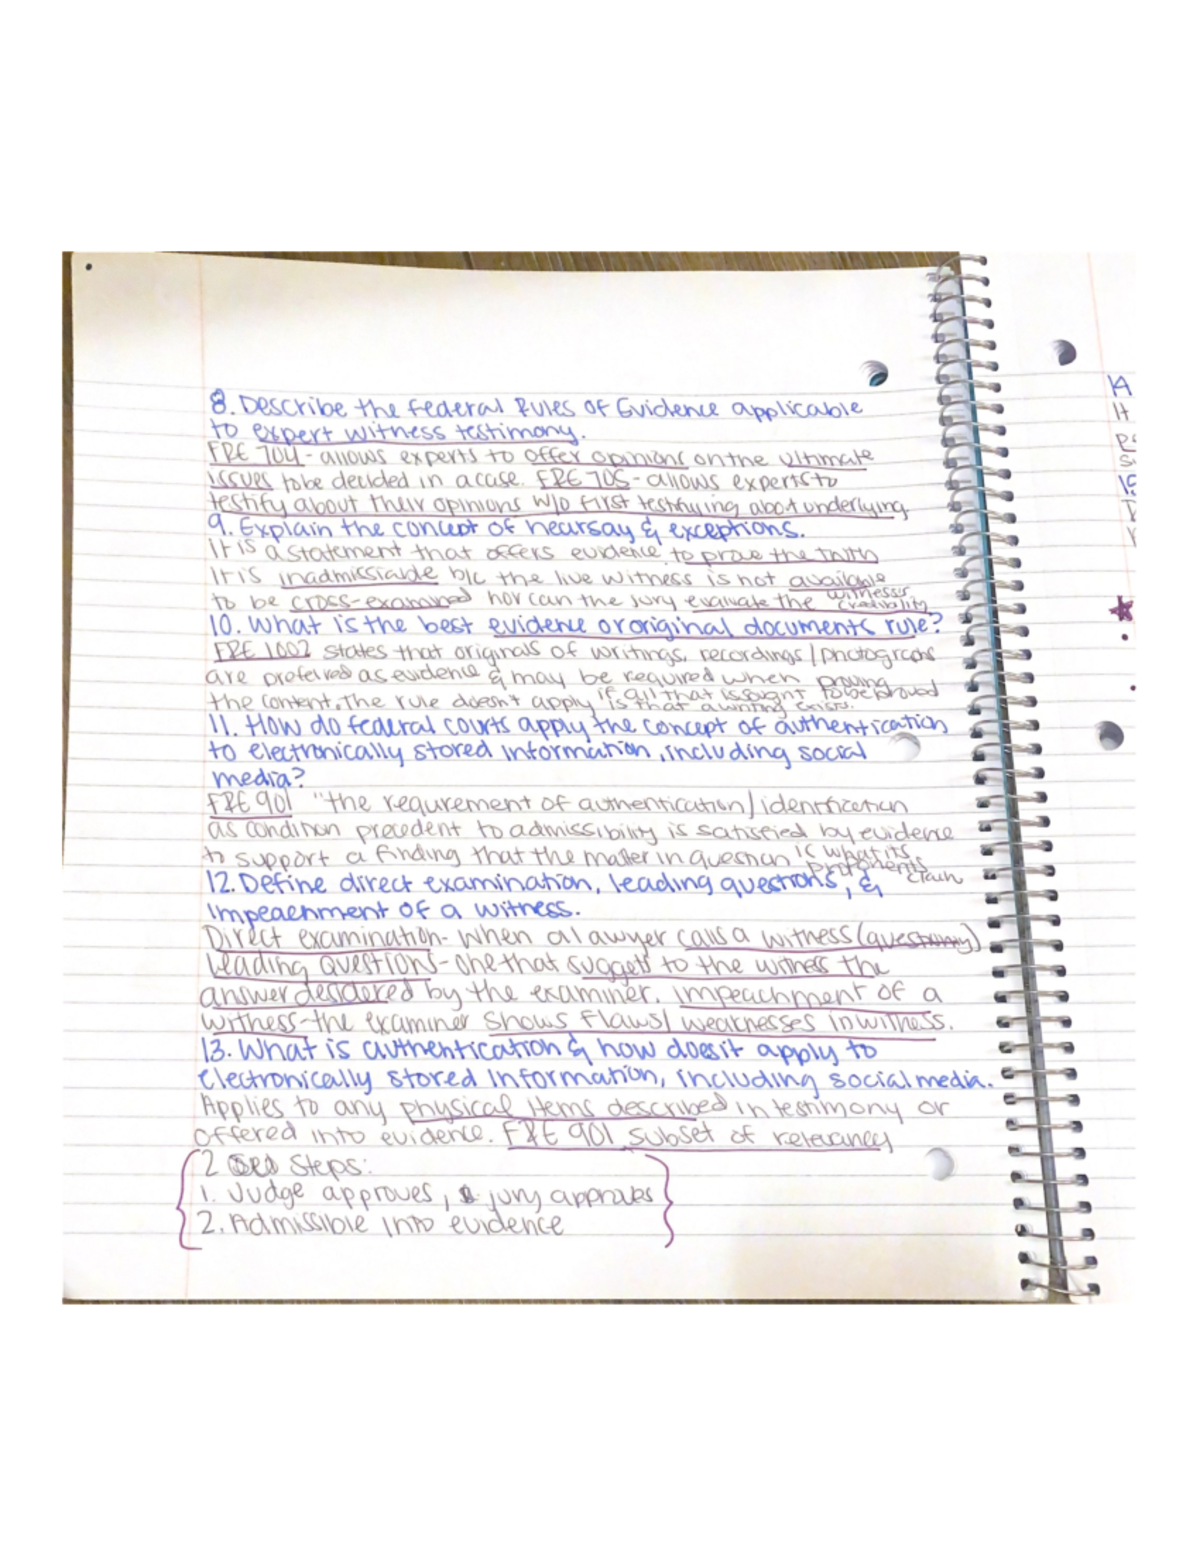 8. Describe the federal Rules of Evidence applicable
to expert witness testimony.
FRE 704 - allows experts to offer opinions on the ultimate
issues to be decided in a case. FRE 705 - allows experts to
testify about their opinions w/o first testifying about underlying
9. Explain the concept of hearsay & exceptions.
It is a statement that offers evidence to prove the truth
It is inadmissiable b/c the live witness is not available
to be cross-examined nor can the jury evaluate the witnesses credibility
10. What is the best evidence or original documents rule?
FRE 1002 states that originals of writings, recordings/photographs
are preferred as evidence & may be required when proving
the content. The rule doesn't apply if all that is sought to be proved is that a writing exists.
11. How do federal courts apply the concept of authentication
to electronically stored information, including social
media?
FRE 901 "the requrement of authentication/identification
as condition precedent to admissibility is satisfied by evidence
to support a finding that the matter in question is what its proponents claim
12. Define direct examination, leading questions, &
impeachment of a witness.
Direct examination- when a lawyer calls a witness (questioning)
Leading questions- one that suggest to the witness the
answer desdered by the examiner. impeachment of a
witness-the examiner shows flaws/ weaknesses in witness.
13. What is authentication & how does it apply to
electronically stored information, including social media.
Applies to any physical items described in testimony or
offered into evidence. FRE 901 subset of relevancy
2 Steps:
1. Judge approves, jury approves
2. Admissible into evidence
14
It